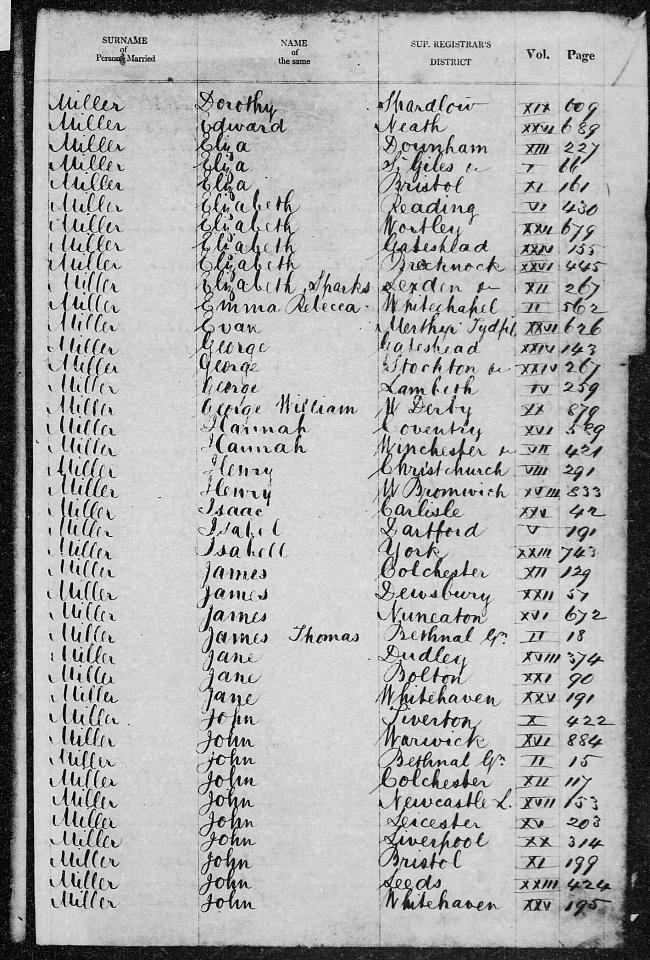 SURNAME of Persons Married NAME of the same SUP. REGISTRAR'S DISTRICT Vol. Page
Miller Dorothy Shardlow XIX 609
Miller Edward Neath XXVI 689
Miller Eliza Downham XIII 227
Miller Eliza St Giles &c I 66
Miller Eliza Bristol XI 161
Miller Elizabeth Reading VI 430
Miller Elizabeth Wortley XXII 679
Miller Elizabeth Gateshead XXIV 155
Miller Elizabeth Brecknock XXVI 445
Miller Elizabeth Sparks Lexden &c XII 267
Miller Emma Rebecca Whitechapel II 562
Miller Evan Merthyr Tydfil XXVI 626
Miller George Gateshead XXIV 143
Miller George Stockton &c XXIV 267
Miller George Lambeth IV 259
Miller George William W Derby XX 879
Miller Hannah Coventry XVI
Miller Hannah Winchester &c VII 421
Miller Henry Christchurch VIII 291
Miller Henry W Bromwich XVIII 833
Miller Isaac Carlisle XXV 42
Miller Isabel Dartford V 191
Miller Isabell York XXIII 743
Miller James Colchester XII 129
Miller James Dewsbury XXII 51
Miller James Nuneaton XVI 672
Miller James Thomas Bethnal Gn. II 18
Miller Jane Dudley XVIII 374
Miller Jane Bolton XXI 90
Miller Jane Whitehaven XXV 191
Miller John Tiverton X 422
Miller John Warwick XVI 884
Miller John Bethnal Gn. II 15
Miller John Colchester XII 117
Miller John Newcastle L. XVII 153
Miller John Leicester XV 203
Miller John Liverpool XX 314
Miller John Bristol XI 199
Miller John Leeds XXIII 424
Miller John Whitehaven XXV 195